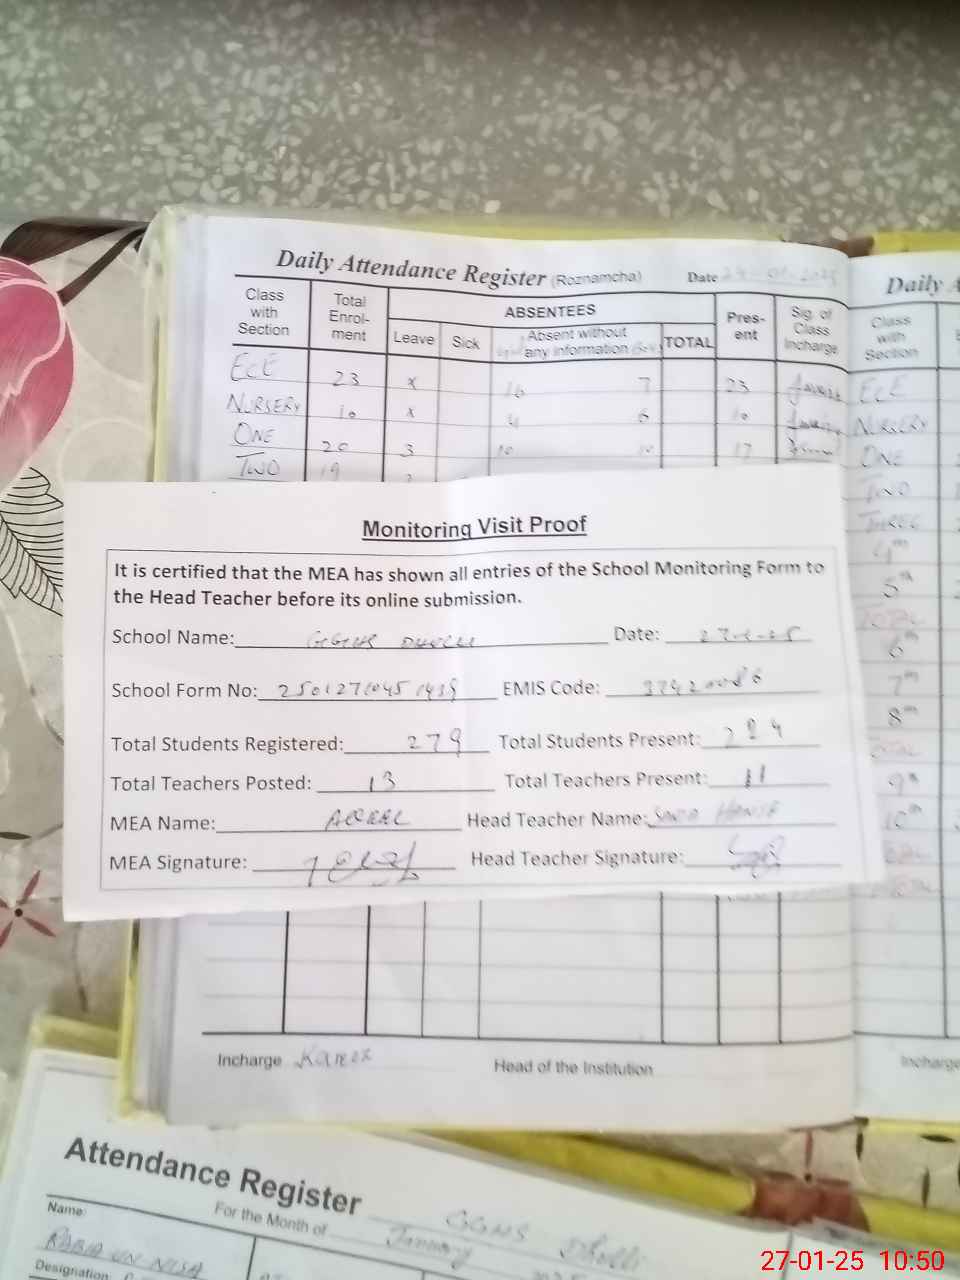 Daily Attendance Register (Roznamcha) Date
Class with Section Total Enrol-ment ABSENTEES Pres-ent Sig. of Class Incharge
Leave Sick Absent without any information TOTAL
ECE 23 x 16 7 23
NURSERY 10 x 4 6 10
ONE 20 3 10 10 17
TWO 19
Daily A
Class with Section
ECE
NURSERY
ONE
TWO
THREE
4th
5th
TOTAL
6th
7th
8th
TOTAL
9th
10th
Monitoring Visit Proof
It is certified that the MEA has shown all entries of the School Monitoring Form to
the Head Teacher before its online submission.
School Name: Date:
School Form No: EMIS Code:
Total Students Registered: 279 Total Students Present: 224
Total Teachers Posted: 13 Total Teachers Present: 11
MEA Name: Head Teacher Name:
MEA Signature: Head Teacher Signature:
Incharge Head of the Institution
Incharge
Attendance Register
For the Month of January
Name:
RABIA UN NISA
Designation
27-01-25 10:50